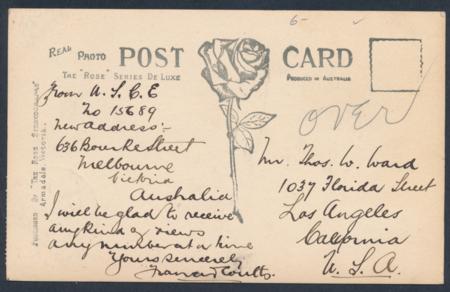 5-
REAL PHOTO POST CARD
THE "ROSE" SERIES DE LUXE
PRODUCED IN AUSTRALIA
PUBLISHED BY "THE ROSE STEREOGRAPHS"
ARMADALE, VICTORIA.
From U.S.C.E
No 15689
New address:-
636 Bourke Street
Melbourne
Victoria
Australia
I will be glad to receive
any kind of views
any number at a time
Yours sincerely
Francis Coutts.
OVER
Mr. Thos. W. Ward
1037 Florida Street
Los Angeles
California
U.S.A.